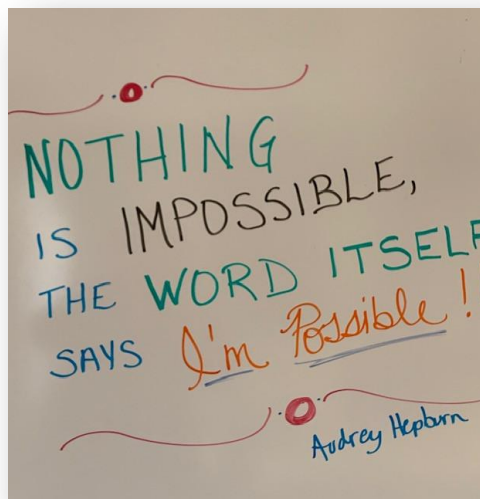 NOTHING
IS IMPOSSIBLE,
THE WORD ITSELF
SAYS I'm Possible!
Audrey Hepburn